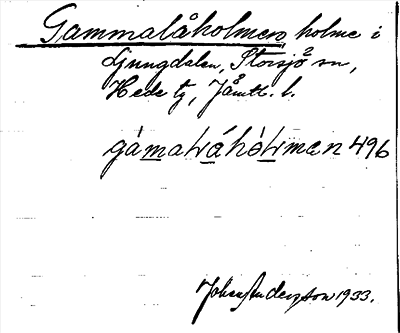 Gammalåholmen, holme i
Ljungdalen, Storsjö sn,
Hede tg, Jämtl. l.
gámaƚráhòƚmen 496
Johan Anderzson 1933.